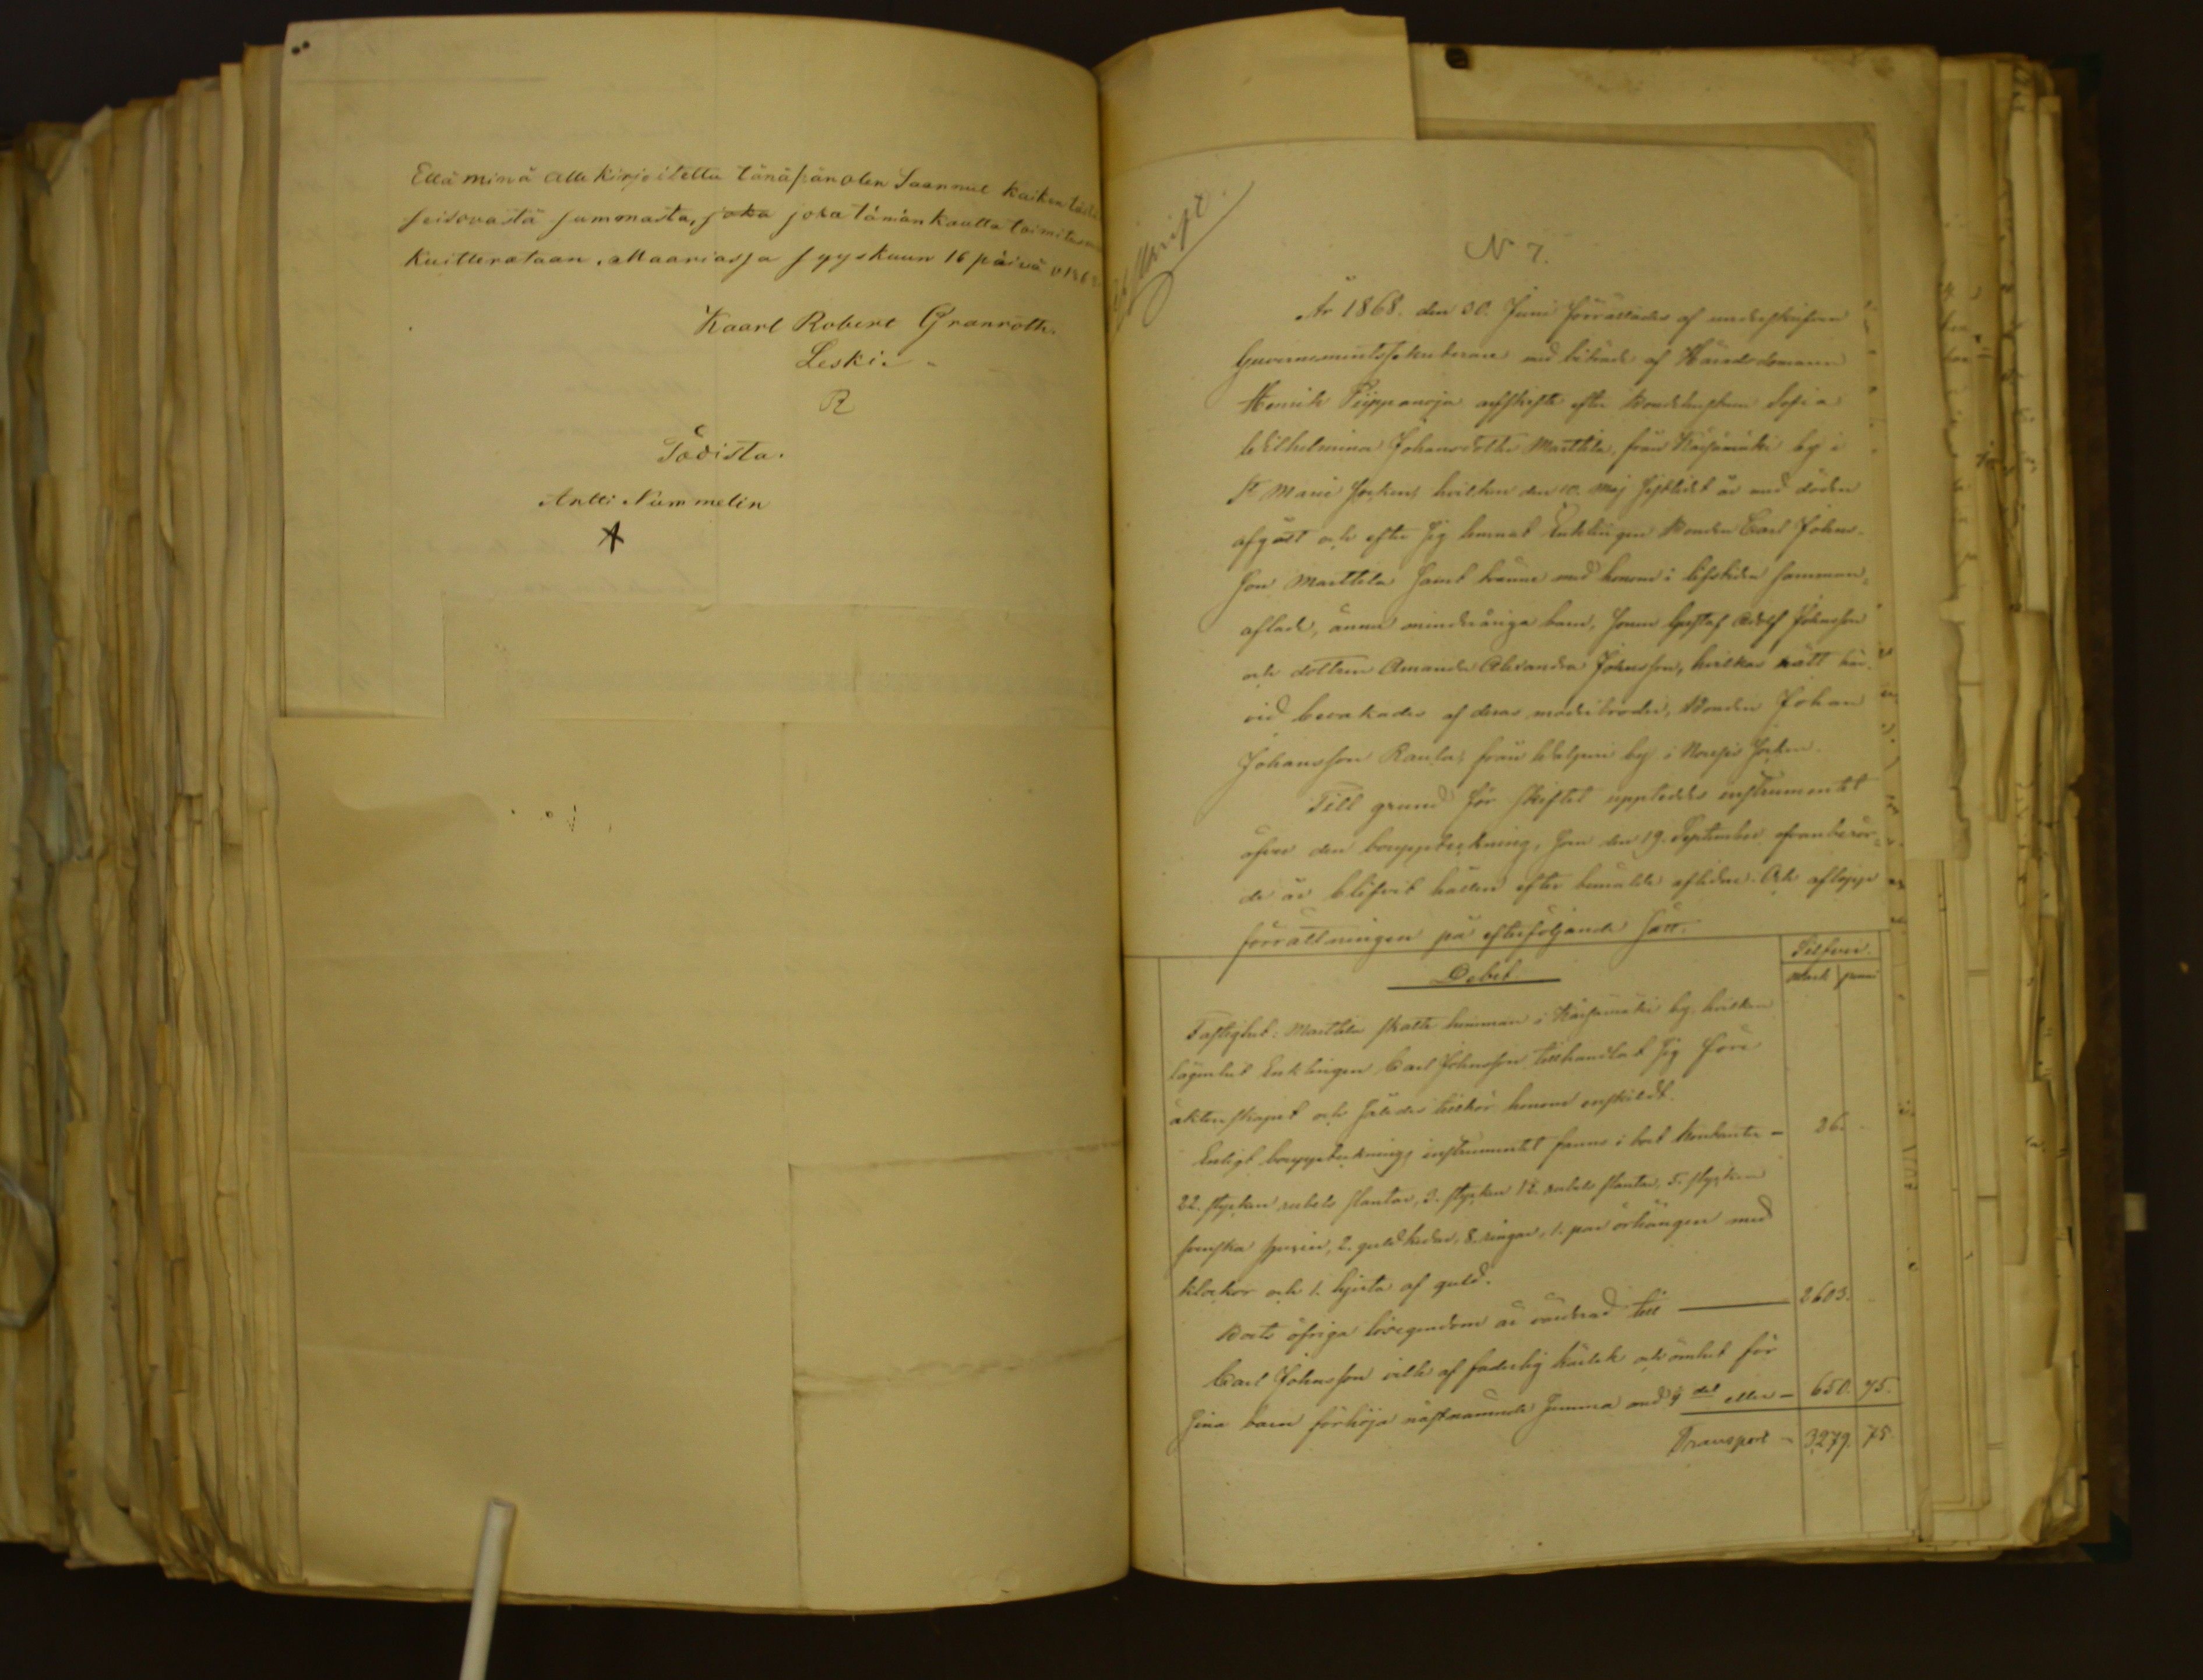 Että minä alle kirjoitettu tänäpän olen Saannut kaiken tästä
seisovasta summasta, joka joka tämän kautta toimitus
kuitterataan. Maariassa syyskuun 16 päivä v 186
Kaarl Robert Granroth.
Leski.
R
Todista.
Antti Nummelin
Afskrift.
N 7.
År 1868. den 30. Juni förrättades af undertecknad
Guvernementssekreterare med biträde af Häradsdomaren
Henrik Piippanoja arfskifte efter Bondehustrun Sofia
Wilhelmina Johansdotter Marttila, från Kärsämäki by i
St Marie socken, hvilken den 10. Maj sistlidet år med döden
afgått och efter sig lemnat Enklingen Bonden Carl Johns-
son Marttila samt tvänne med honom i lifstiden samman-
aflade, ännu minderåriga barn, sonen Gustaf Adolf Johnsson
och dottren Amanda Alexandra Johnsson, hvilkas rätt här-
vid bevakades af deras moderbroder, Bonden Johan
Johansson Ranta, från by i Nousis socken.
Till grund för skiftet uppteddes instrumentet
öfver den bouppteckning, som den 19. September ofvanberör-
de år blifvit hållen efter bemälde aflidne. Och aflopp
förrättningen på efterföljande sätt.
Debet Silfver.
Mark penni
Fastighet: Marttila skatte hemman i Kärsämäki by, hvilken
lägenhet Enklingen Carl Johnsson tillhandlat sig före
äktenskapet och således tillhör honom enskildt.
Enligt bouppteckningsinstrumentet fanns i boet kontanta - 26. -
22. stycken rubels slantar, 3. stycken 1½ rubels slantar, 5. stycken
svenska specier, 2. guldkedjor, 8. ringar, 1. par örhängen med
klockor och 1. hjerta af guld.
Boets öfriga lösegendom är värderad till 2603. -
Carl Johnsson vill af faderlig kärlek och ömhet för
sina barn förhöja nästnämnde summa med ¼ del eller - 650. 75.
Transport - 3279. 75